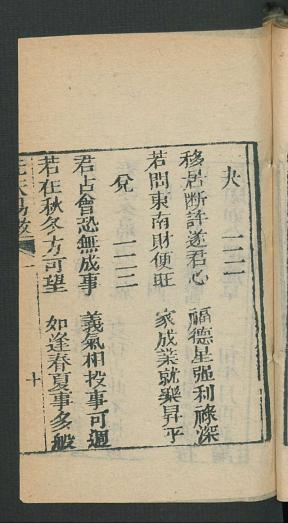 夬 一二二
移居斷許遂君心 福德星強利祿深
若問東南財便旺 家成業就樂昇平
兌 一一三
君占會恐無成事 義氣相投事可週
若在秋冬方可望 如逢春夏事多般
十